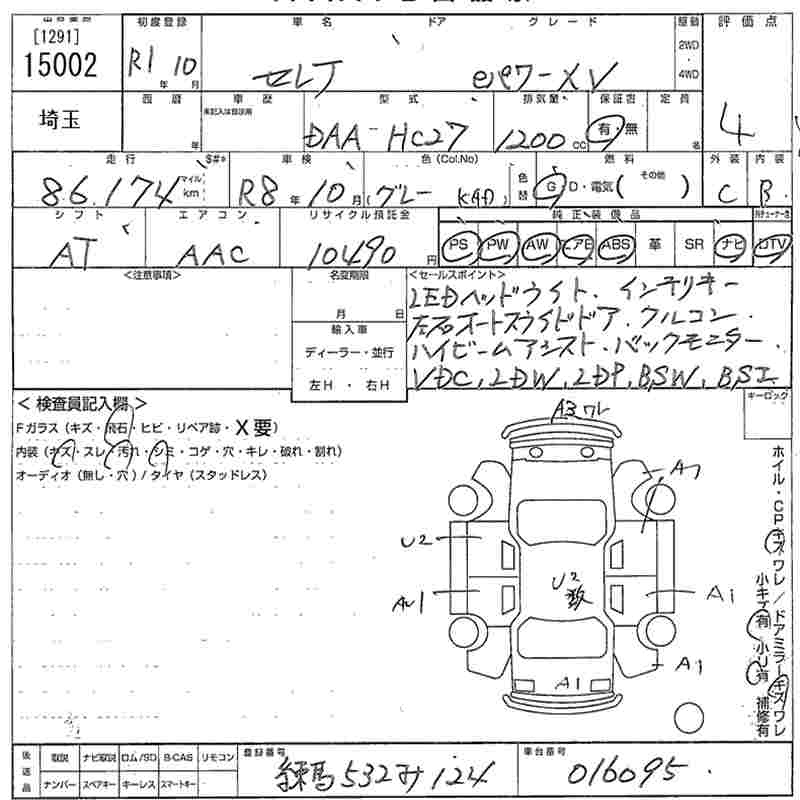 [1291]
15002
埼玉
初度登録 R1年10月
車名 セレナ
ドア
グレード eパワーXV
駆動 2WD 4WD
評価点 4
西暦 年
車歴 未記入は自家用
型式 DAA-HC27
排気量 1200cc
保証書 有・無
定員 名
走行 86,174 マイル km
S#*
車検 R8年10月
色(Col.No) (グレー KAD)
色替
燃料 G・D・電気( その他 )
外装 C
内装 B
シフト AT
エアコン AAC
リサイクル預託金 10490円
純正装備品
PS PW AW エアB ABS 革 SR ナビ DTV
<注意事項>
名変期限 月 日
輸入車
ディーラー・並行
左H・右H
<セールスポイント>
LEDヘッドライト.インテリキー
左右オートスライドドア.クルコン.
ハイビームアシスト.バックモニター.
VDC,LDW,LDP,BSW,BSI
<検査員記入欄>
キーロック
Fガラス(キズ・飛石・ヒビ・リペア跡・X要)
内装(キズ・スレ・汚れ・シミ・コゲ・穴・キレ・破れ・割れ)
オーディオ(無し・穴)/タイヤ(スタッドレス)
A3ワレ
A1
U2
U2数
A1
A1
A1
ホイル・CPキズワレ/ドアミラーキズワレ
小キズ有 小U有 補修有
後送品
取説 ナビ取説 ロム/SD B-CAS リモコン
ナンバー スペアキー キーレス スマートキー
登録番号 練馬532み124
車台番号 016095